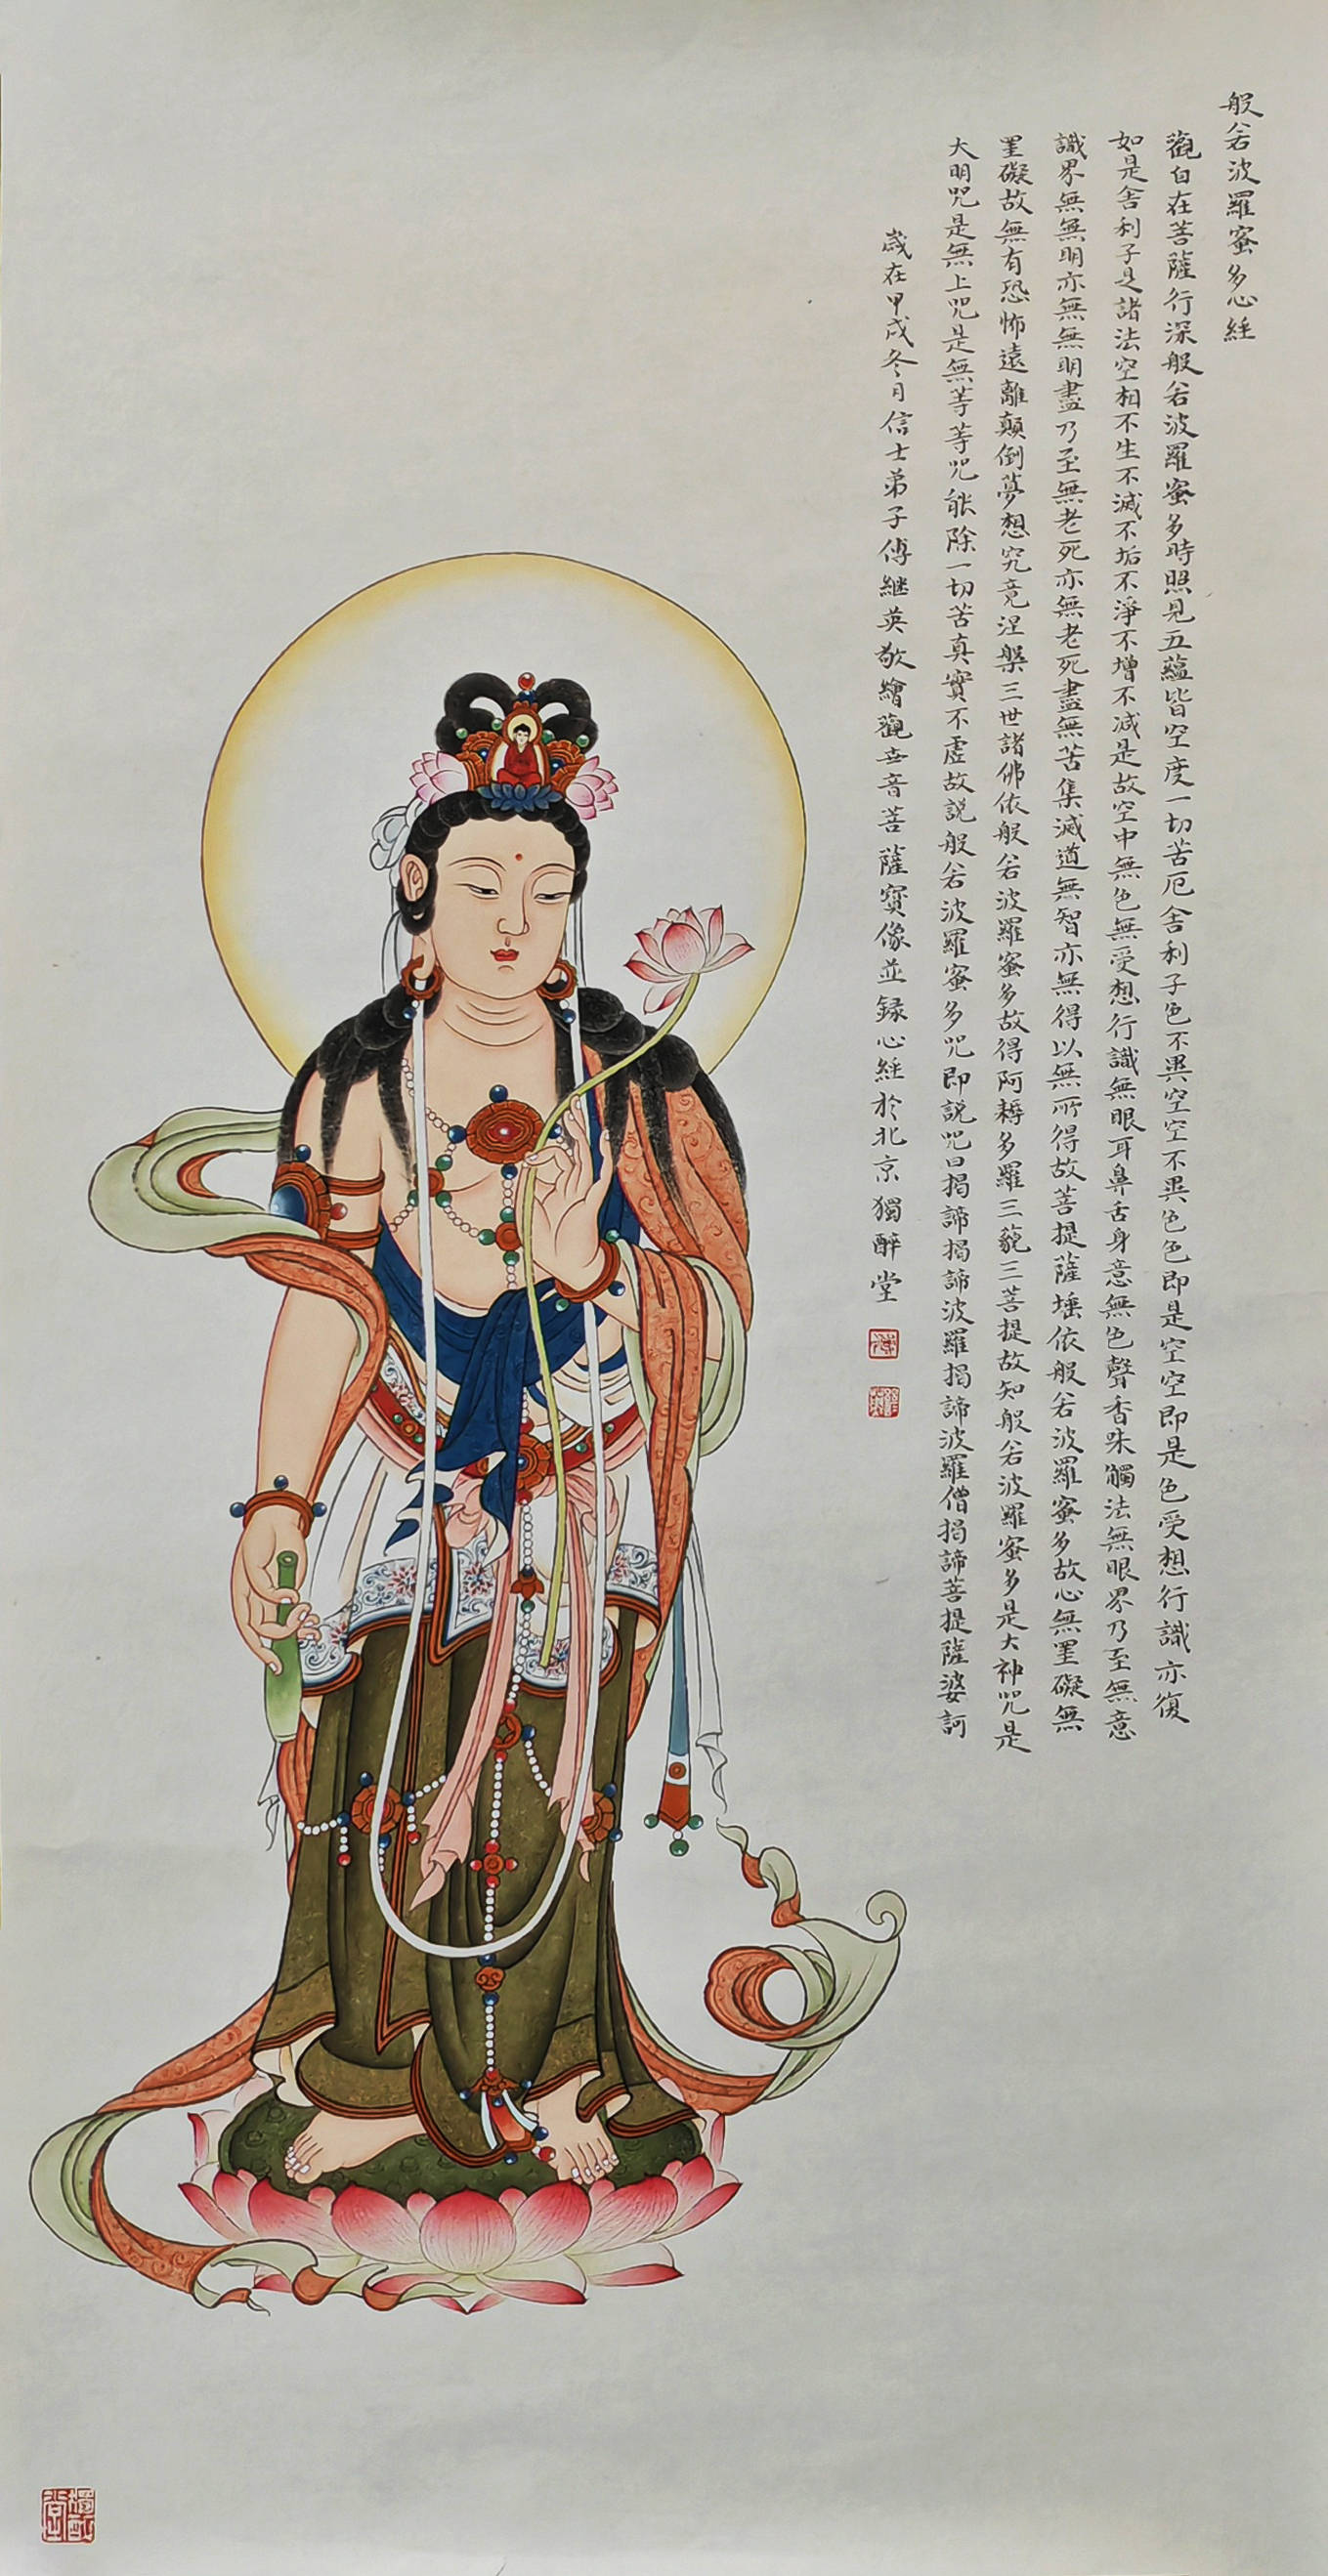 般若波羅蜜多心經
觀自在菩薩行深般若波羅蜜多時照見五蘊皆空度一切苦厄舍利子色不異空空不異色色即是空空即是色受想行識亦復
如是舍利子是諸法空相不生不滅不垢不淨不增不減是故空中無色無受想行識無眼耳鼻舌身意無色聲香味觸法無眼界乃至無意
識界無無明亦無無明盡乃至無老死亦無老死盡無苦集滅道無智亦無得以無所得故菩提薩埵依般若波羅蜜多故心無罣礙無
罣礙故無有恐怖遠離顛倒夢想究竟涅槃三世諸佛依般若波羅蜜多故得阿耨多羅三藐三菩提故知般若波羅蜜多是大神咒是
大明咒是無上咒是無等等咒能除一切苦真實不虛故説般若波羅蜜多咒即説咒曰揭諦揭諦波羅揭諦波羅僧揭諦菩提薩婆訶
歲在甲戌冬月信士弟子傅繼英敬繪觀世音菩薩寶像並録心經於北京獨醉堂
獨醉堂